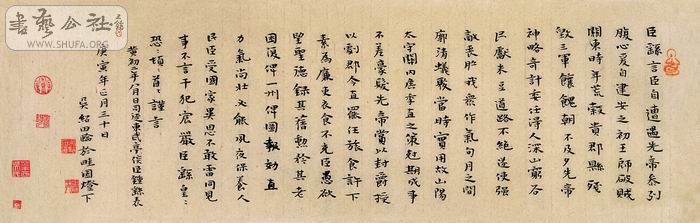 臣繇言臣自遭遇先帝忝列
腹心爰自建安之初王師破賊
關東時年荒穀貴郡縣殘
毀三軍餽饟朝不及夕先帝
神略奇計委任得人深山窮谷
民獻米豆道路不絕遂使強
敵喪膽我眾作氣旬月之間
廓清蟻聚當時實用故山陽
太守關內侯季直之策剋期成事
不差豪髮先帝賞以封爵授
以劇郡今直罷任旅食許下
素為廉吏衣食不充臣愚欲
望聖德錄其舊勳矜其老
困復俾一州俾圖報效直
力氣尚壯必能夙夜保養人
民臣受國家異恩不敢雷同見
事不言干犯宸嚴臣繇皇〻
恐〻頓〻首〻謹言
黃初二年八月日司徒東武亭侯臣鍾繇表
庚寅年二月三十日
吳紹田臨於畦園燈下
書藝公社
WWW.SHUFA.ORG